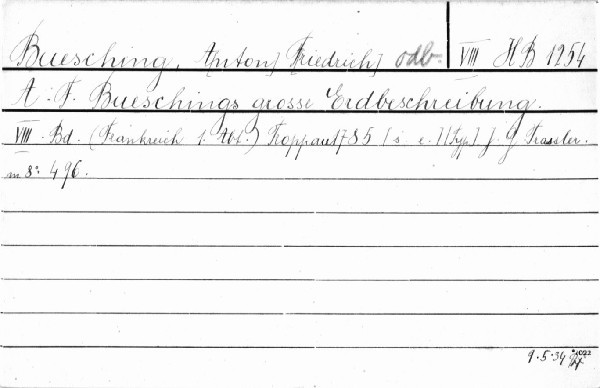 Buesching, A[nton] F[riedrich] odb. VIII H B 1254
A. F. Bueschings grosse Erdbeschreibung.
VIII. Bd. (Frankreich 1. Abt.) Troppau 1785 [s. e.] [Typ.] J. G. Trassler.
m 8º 496.
9.5.34